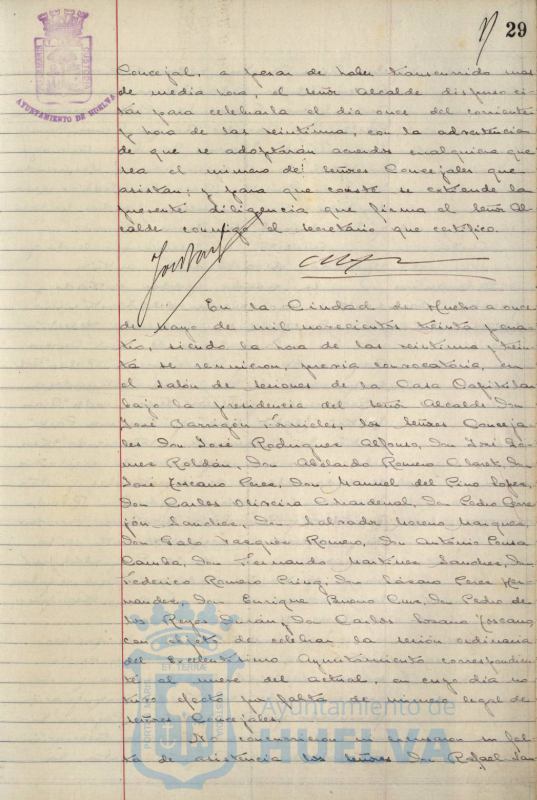 29
AYUNTAMIENTO DE HUELVA
Concejal, a pesar de haber transcurrido mas
de media hora, el señor Alcalde dispuso ci-
tar para celebrarla el dia once del corriente
y hora de las veintiuna, con la advertencia
de que se adoptarán acuerdos cualquiera que
sea el número de señores Concejales que
asistan; y para que conste se extiende la
presente diligencia que firma el señor Al-
calde conmigo el secretario que certifico.
En la Ciudad de Huelva a once
de Mayo de mil novecientos treinta y cua-
tro, siendo la hora de las veintiuna y trein-
ta se reunieron, previa convocatoria, en
el salón de sesiones de la Casa Capitular
bajo la presidencia del señor Alcalde Don
José Barrigón Fornieles, los señores Conceja-
les Don José Rodriguez Alfonso, Don José Gó-
mez Roldán, Don Abelardo Romero Claret, Don
José Toscano Perez, Don Manuel del Pino Lopez,
Don Carlos Oliveira Chardenal, Don Pedro Gare-
jón Sanchez, Don Salvador Moreno Marquez,
Don Galo Vazquez Romero, Don António Pousa
Camba, Don Fernando Martinez Sanchez, Don
Federico Romero Piring, Don Lázaro Perez Her-
nandez, Don Enrique Bueno Cruz, Don Pedro de
los Reyes Durán y Don Carlos Lozano Toscano,
con objeto de celebrar la sesión ordinaria
del Excelentísimo Ayuntamiento correspondien-
te al nueve del actual, en cuyo dia no
tuvo efecto por falta de número legal de
señores Concejales.
No concurrieron ni excusaron su fal-
ta de asistencia los señores Don Rafael
Ayuntamiento de
HUELVA